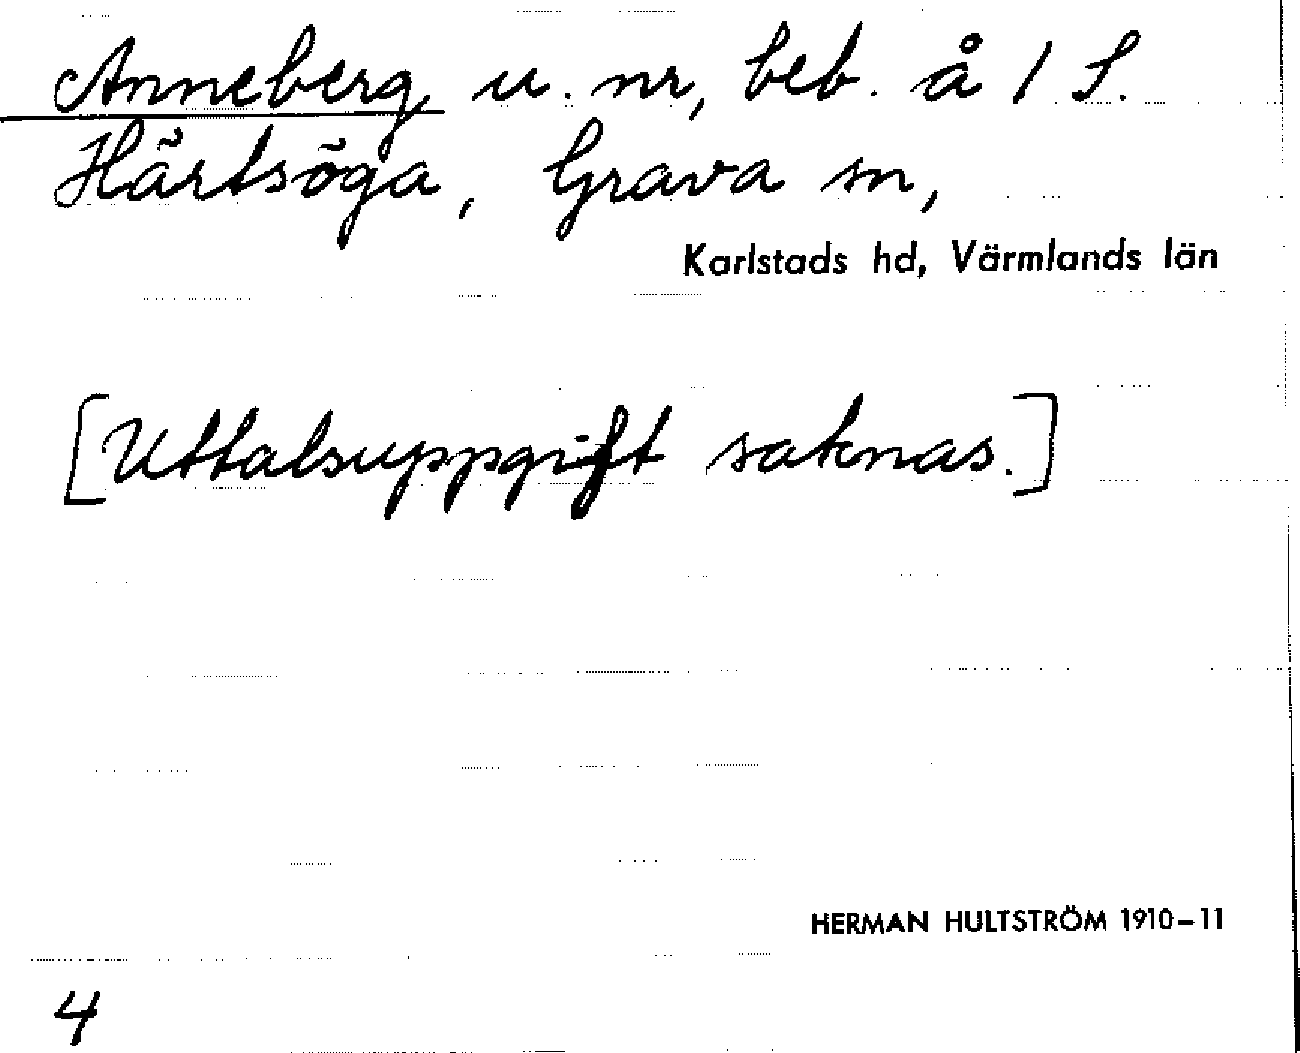 Anneberg, u. nr, beb. å 1 S.
Härtsöga, Grava sn,
Karlstads hd, Värmlands län
[Uttalsuppgift saknas.]
HERMAN HULTSTRÖM 1910–11
4